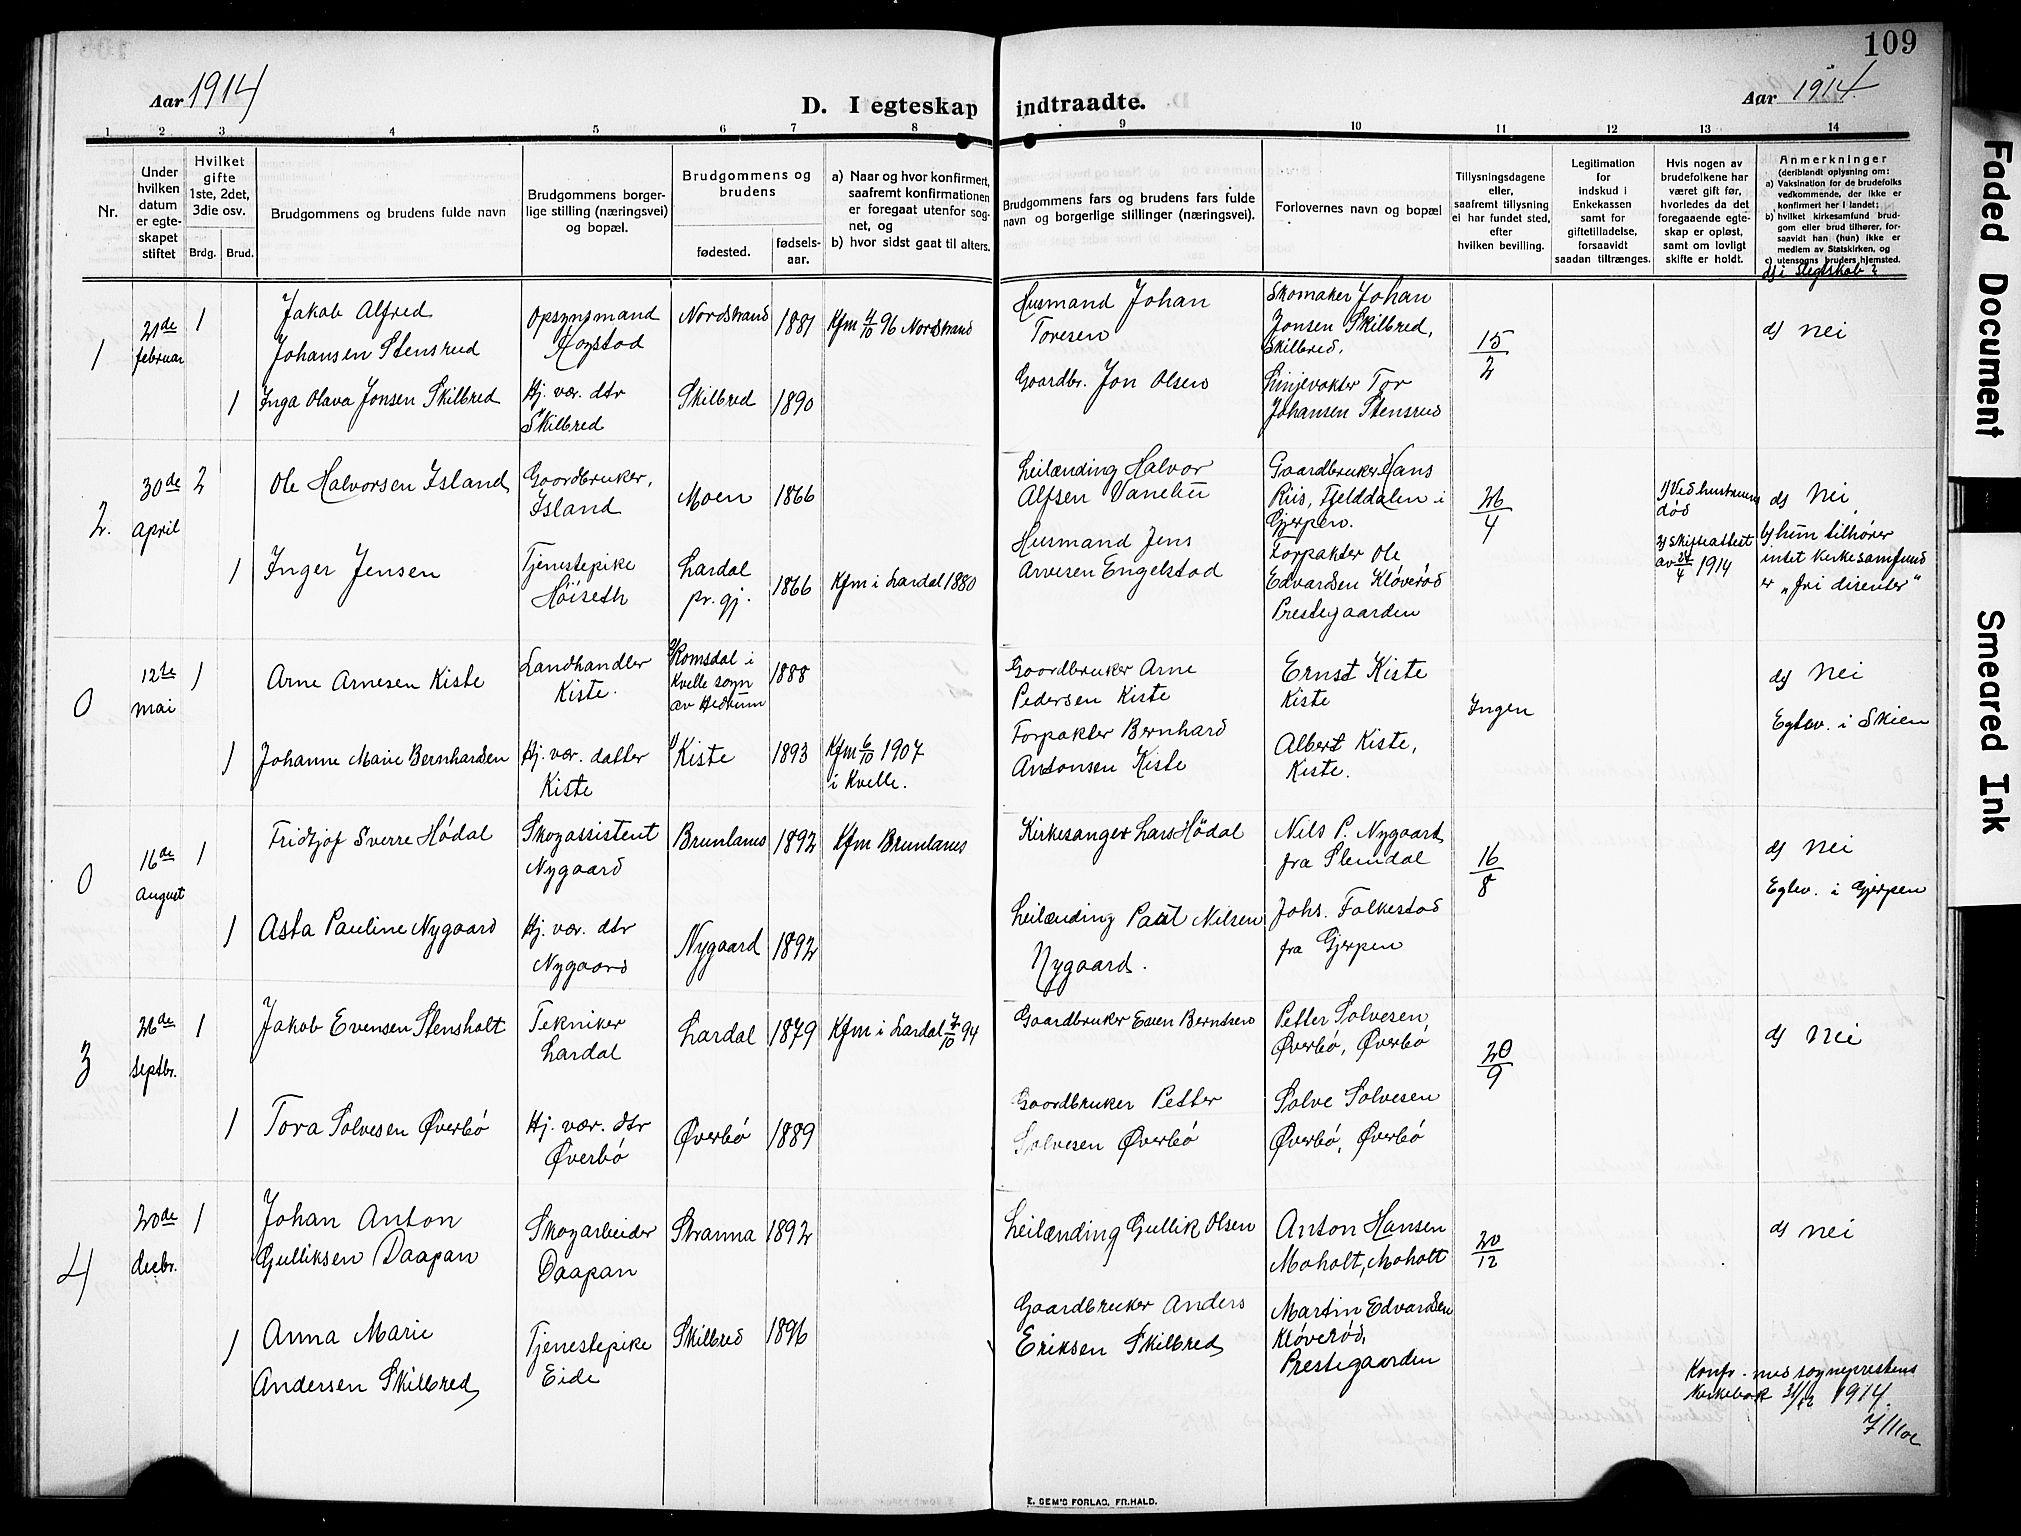 109
Aar 1914
D. I egteskap indtraadte.
Aar 1914.
1 2 3 4 5 6 7 8 9 10 11 12 13 14
Nr.
Under
hvilken
datum
er egte-
skapet
stiftet
Hvilket
gifte
1ste, 2det,
3die osv.
Brdg. Brud.
Brudgommens og brudens fulde navn
Brudgommens borger-
lige stilling (næringsvei)
og bopæl.
Brudgommens og
brudens
fødested.
fødsels-
aar.
a) Naar og hvor konfirmert,
saafremt konfirmationen
er foregaat utenfor sog-
net, og
b) hvor sidst gaat til alters.
Brudgommens fars og brudens fars fulde
navn og borgerlige stillinger (næringsvei).
Forlovernes navn og bopæl
Tillysningsdagene
eller,
saafremt tillysning
ei har fundet sted,
efter
hvilken bevilling.
Legitimation
for
indskud i
Enkekassen
samt for
giftetilladelse,
forsaavidt
saadan tiltrænges.
Hvis nogen av
brudefolkene har
været gift før,
hvorledes da det
foregaaende egte-
skap er opløst,
samt om lovligt
skifte er holdt.
Anmerkninger
(deriblandt oplysning om:
a) Vaksination for de brudefolks
vedkommende, der ikke er
konfirmert her i landet;
b) hvilket kirkesamfund brud-
gom eller brud tilhører, for-
saavidt han (hun) ikke er
medlem av Statskirken, og
c) utensogns bruders hjemsted.
d) i Slegtskab?
1
21de
februar
1
Jakob Alfred
Johansen Stensrud
Opsynsmand
Nordstrand
1881
Kfm 4/10 96 Nordstrand
Husmand Johan
Toresen
Skomaker Johan
Jonsen Skilbred,
Skilbred.
15/2
d) nei
1
Inga Olava Jonsen Skilbred
Hj. vær. dtr
Skilbred
Skilbred
1890
Gaardbr. Jon Olsen
Linjevokter Tor
Johansen Stensrud
2.
30de
april
2
Ole Halvorsen Island
Gaardbruker,
Island
Moen
1866
Leilænding Halvor
Alfsen Vanebu
Gaardbruker Hans
Riis, Fjelddalen i
Gjerpen.
26/4
1) Ved hustruens
død
2) Skifteattest
av 24/4 1914
d) Nei
b) hun tilhører
intet kirkesamfund
er „fri disenter“
1
Inger Jensen
Tjenestepike
Høiseth
Lardal
pr. gj.
1866
Kfm i Lardal 1880
Husmand Jens
Arvesen Engelstad
Forpakter Ole
Edvardsen Kløverød
Prestegaarden
0
12te
mai
1
Arne Arnesen Kiste
Landhandler
Kiste.
Romsdal i
Kvelle sogn
av Hedrum
1888
Gaardbruker Arne
Pedersen Kiste
Ernst Kiste
Kiste
Ingen
d) Nei
Egtev. i Skien
1
Johanne Marie Bernhardsen
Hj. vær. datter
Kiste
Kiste
1893
Kfm 6/10 1907
i Kvelle.
Forpakter Bernhard
Antonsen Kiste
Albert Kiste,
Kiste.
0
16de
August
1
Fridtjof Sverre Hødal
Skogassistent
Nygaard
Brunlanes
1892
Kfm Brunlanes
Kirkesanger Lars Hödal
Nils P. Nygaard
fra Slemdal
16/8
d) Nei
Egtev. i Gjerpen
1
Asta Pauline Nygaard
Hj. vær. dtr
Nygaard
Nygaard
1892
Leilænding Paul Nilsen
Nygaard.
Johs. Falkestad
fra Gjerpen
3
26de
Septbr.
1
Jakob Evensen Stensholt
Tekniker
Lardal
Lardal
1879
Kfm i Lardal 7/10 94
Gaardbruker Even Berntsen
Petter Solvesen
Øverbö, Øverbö
20/9
d) Nei
1
Tora Solvesen Øverbö
Hj. vær. dtr
Øverbö
Øverbö
1889
Gaardbruker Petter
Solvesen Øverbö
Solve Solvesen
Øverbö, Øverbö
4
20de
decbr.
1
Johan Anton
Gulliksen Daapan
Skogarbeider
Daapan
Stranna
1892
Leilænding Gullik Olsen
Anton Hansen
Moholt, Moholt
20/12
d) Nei
1
Anna Marie
Andersen Skilbred
Tjenestepike
Eide
Skilbred
1896
Gaardbruker Anders
Eriksen Skilbred
Martin Edvardsen
Kløverød,
Prestegaarden
Konfr. med sogneprestens
kirkebok 31/12 1914.
E. SEM'S FORLAG, FR.HALD.
Faded Document
Smeared Ink